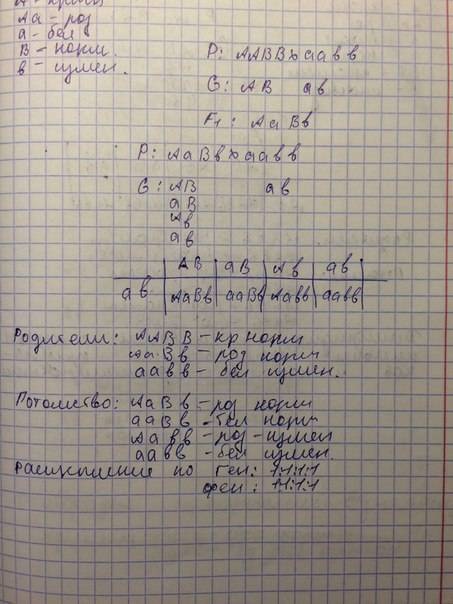 Аа - роз
а - бел
В - норм.
в - измен.
Р: ААВВ х аавв
G: АВ ав
F₁: АаВв
Р: АаВв х аавв
G: АВ ав
аВ
Ав
ав
АВ аВ Ав ав
ав АаВв ааВв Аавв аавв
Родители: ААВВ - кр норм
АаВв - роз норм
аавв - бел измен.
Потомство: АаВв - роз норм
ааВв - бел норм
Аавв - роз - измен
аавв - бел измен.
Расщепление по ген: 1:1:1:1
фен: 1:1:1:1